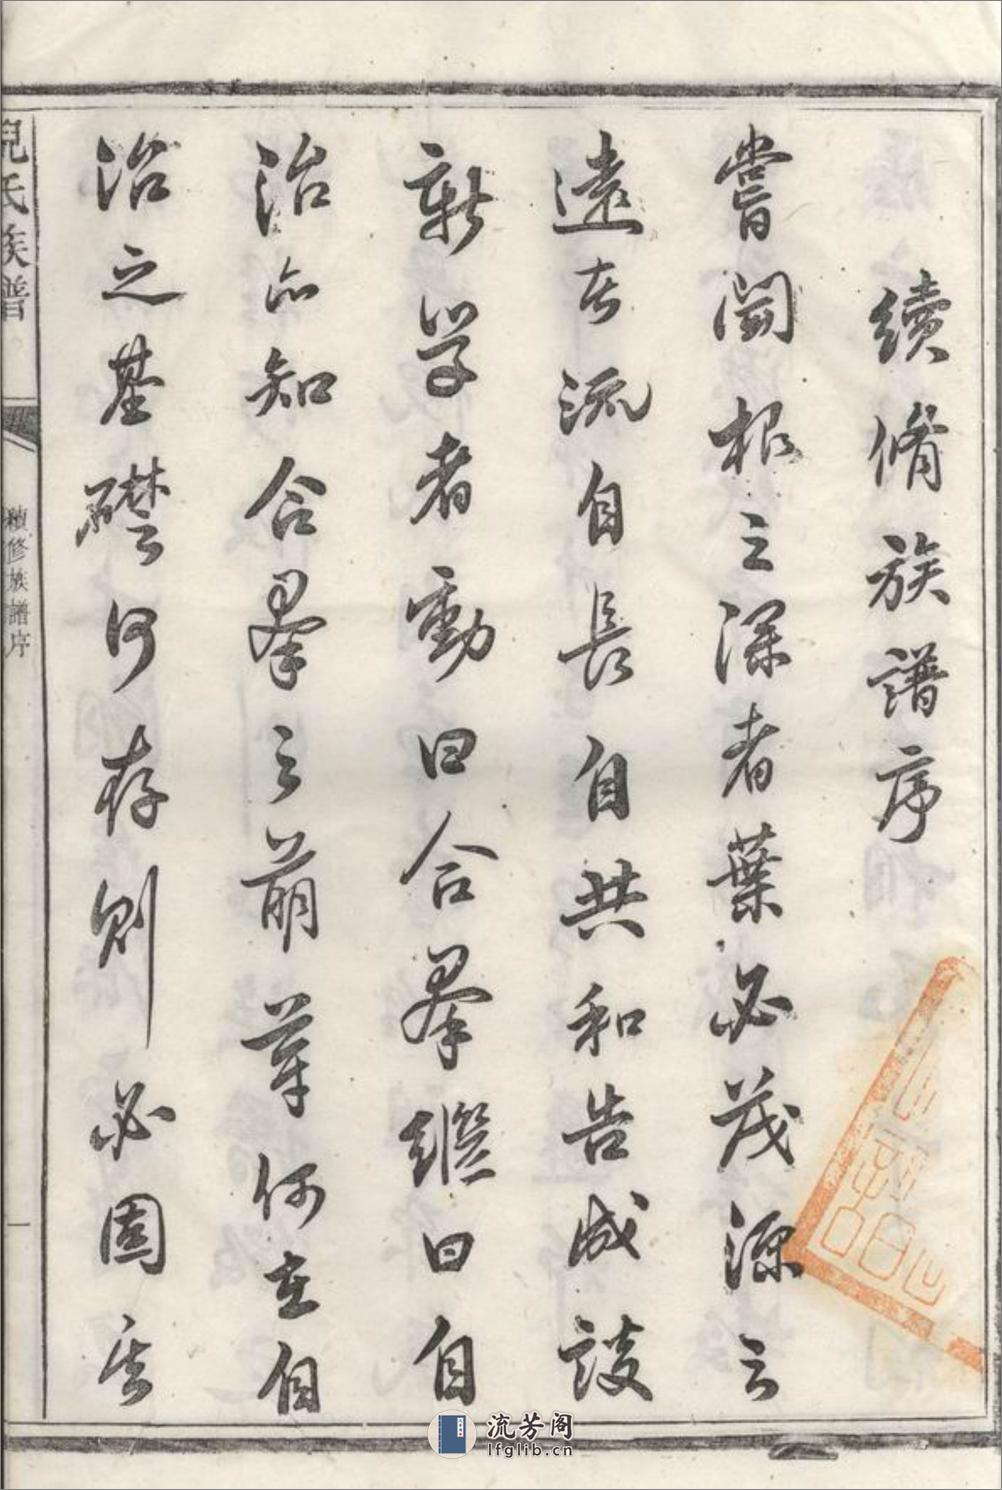 續脩族譜序
嘗聞根之深者葉必茂源之
遠者流自長自共和告成談
新學者動曰合羣繼曰自
治亦知合羣之萌芽何在自
治之基礎何存則必固矣
倪氏族譜
續修族譜序
一
流芳阁
lfglib.cn